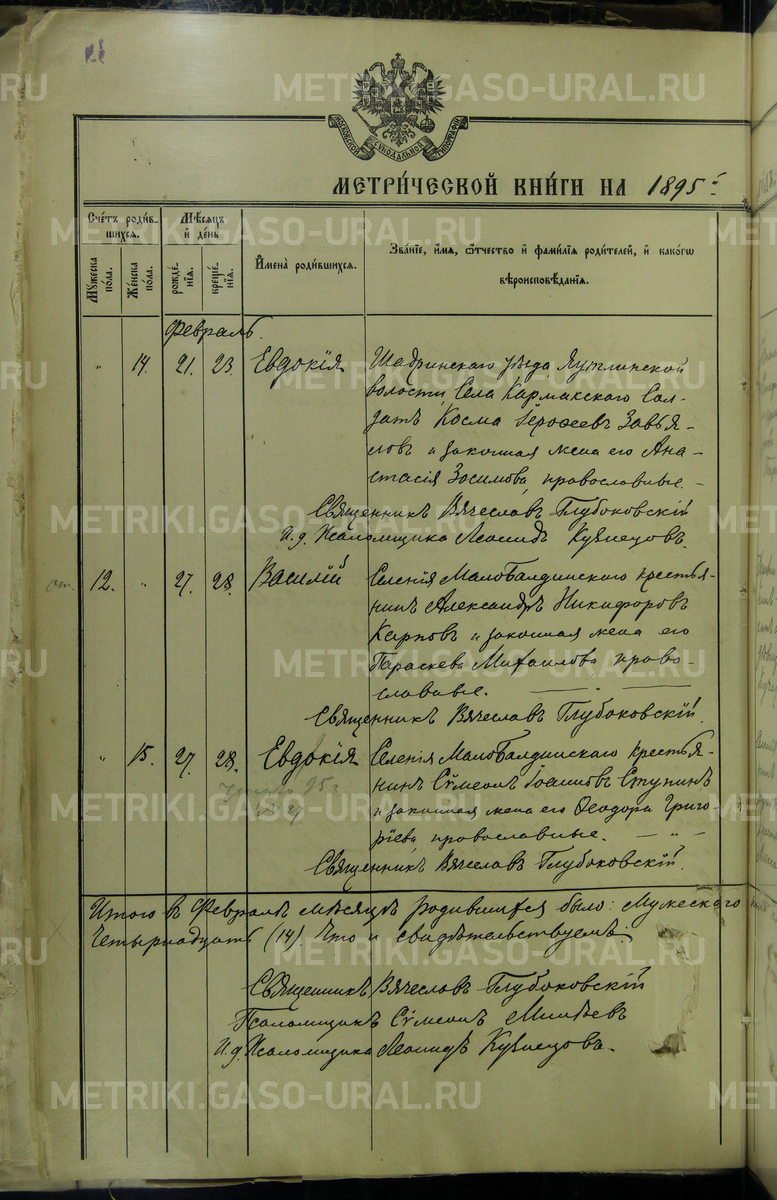 МОСКОВСКОЙ СУНОДАЛЬНОЙ ТИПОГРАФІИ
МЕТРИ́ЧЕСКОЙ КНИ́ГИ НА 1895 г.
Сче́тъ роди́в-
шихся.
Мѣ́сяцъ
и́ де́нь
Му́жеска по́ла.
Же́нска по́ла.
рожде́-
нія.
креще́-
нія.
И҆мена̀ роди́вшихся.
Зва́ніе, и҆́мя, ѻ҆́тчество и҆ фами́лія роди́телей, и҆ како́гѡ
вѣроисповѣ́данія.
Февраль.
" 14. 21. 23. Евдокія Шадринскаго уѣзда Яутлинской
волости, Села Кармакскаго Сол-
датъ Косма Іероѳеевъ Завья-
ловъ и законная жена его Ана-
стасія Зосимова, православные. –
Священникъ Вячеславъ Глубоковскій
И. д. Псаломщика Леонидъ Кузнецовъ.
12. " 27. 28. Василій Селенія Малобалдинскаго крестья-
нинъ Александръ Никифоровъ
Карповъ и законная жена его
Параскева Михаилова право-
славные.
Священникъ Вячеславъ Глубоковскій.
" 15. 27. 28. Евдокія Селенія Малобалдинскаго крестья-
нинъ Сѵмеонъ Іоанновъ Ступинъ
и законная жена его Ѳеодора Григо-
ріева, православные. — " –
Священникъ Вячеславъ Глубоковскій.
Итого въ Февралѣ мѣсяцѣ родившихся было: Мужескаго
четырнадцать (14). Что и свидѣтельствуемъ:
Священникъ Вячеславъ Глубоковскій
Псаломщикъ Сѵмеонъ
И. д. Псаломщика Леонидъ Кузнецовъ.
METRIKI.GASO-URAL.RU